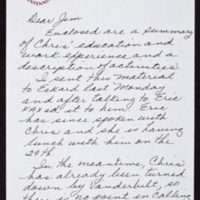 Dear Jim
Enclosed are a summary
of Chris' education and
work experience and a
description of activities.
I sent this material
to Eckard last Monday
and after talking to Eric
faxed it to him. Eric
has since spoken with
Chris and she is having
lunch with him on the
29th.
In the meantime, Chris
has already been turned
down by Vanderbilt, so
there is no point in calling